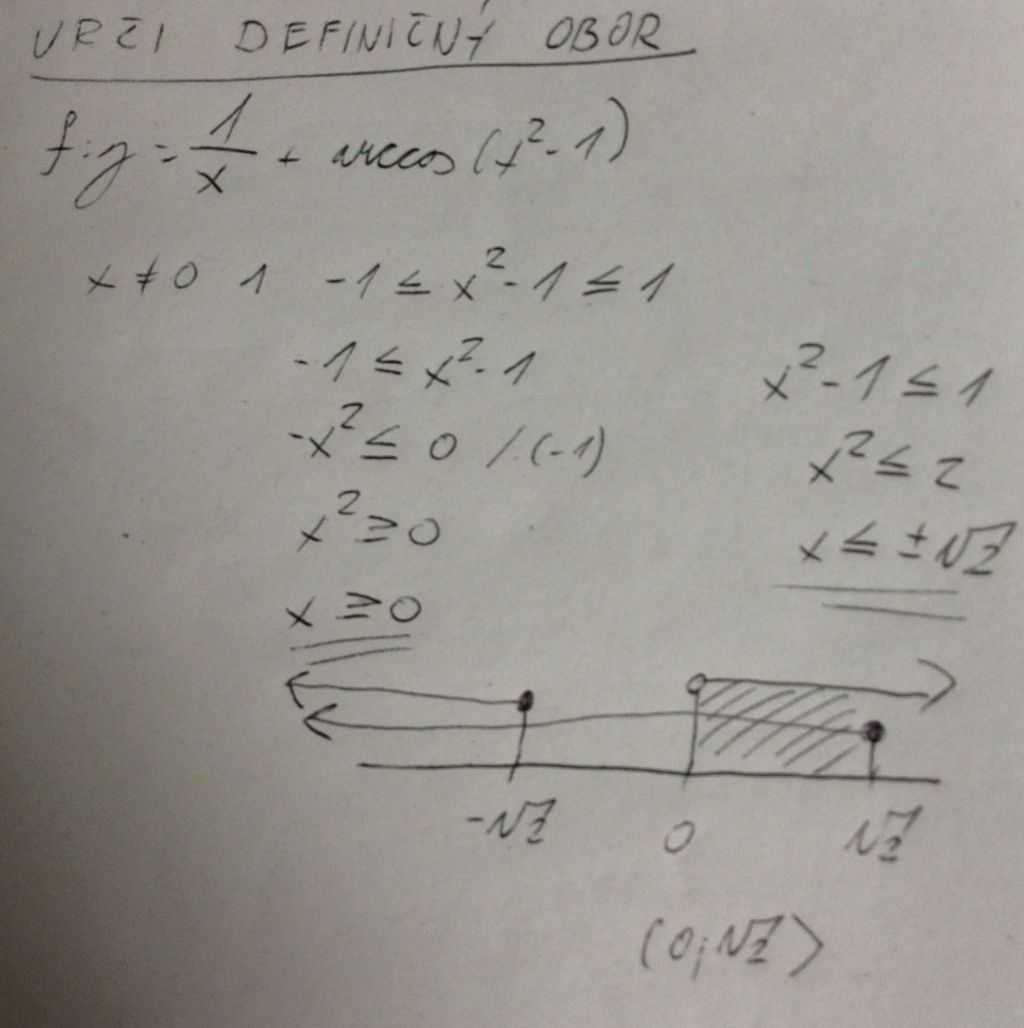 URČI DEFINIČNÝ OBOR
f: y = 1/x + arccos (x² - 1)
x ≠ 0 ∧ -1 ≤ x² - 1 ≤ 1
-1 ≤ x² - 1
x² - 1 ≤ 1
-x² ≤ 0 /·(-1)
x² ≤ 2
x² ≥ 0
x ≤ ±√2
x ≥ 0
-√2 0 √2
(0; √2⟩